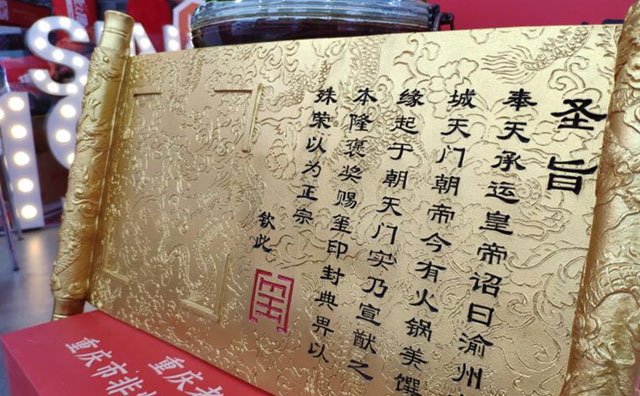 圣旨
奉天承运皇帝诏曰渝州
城天门朝帝今有火锅美馔
缘起于朝天门实乃宣猷之
本隆褒奖赐玺印封典畀以
殊荣以为正宗
钦此
重庆老
重庆市非
SUN